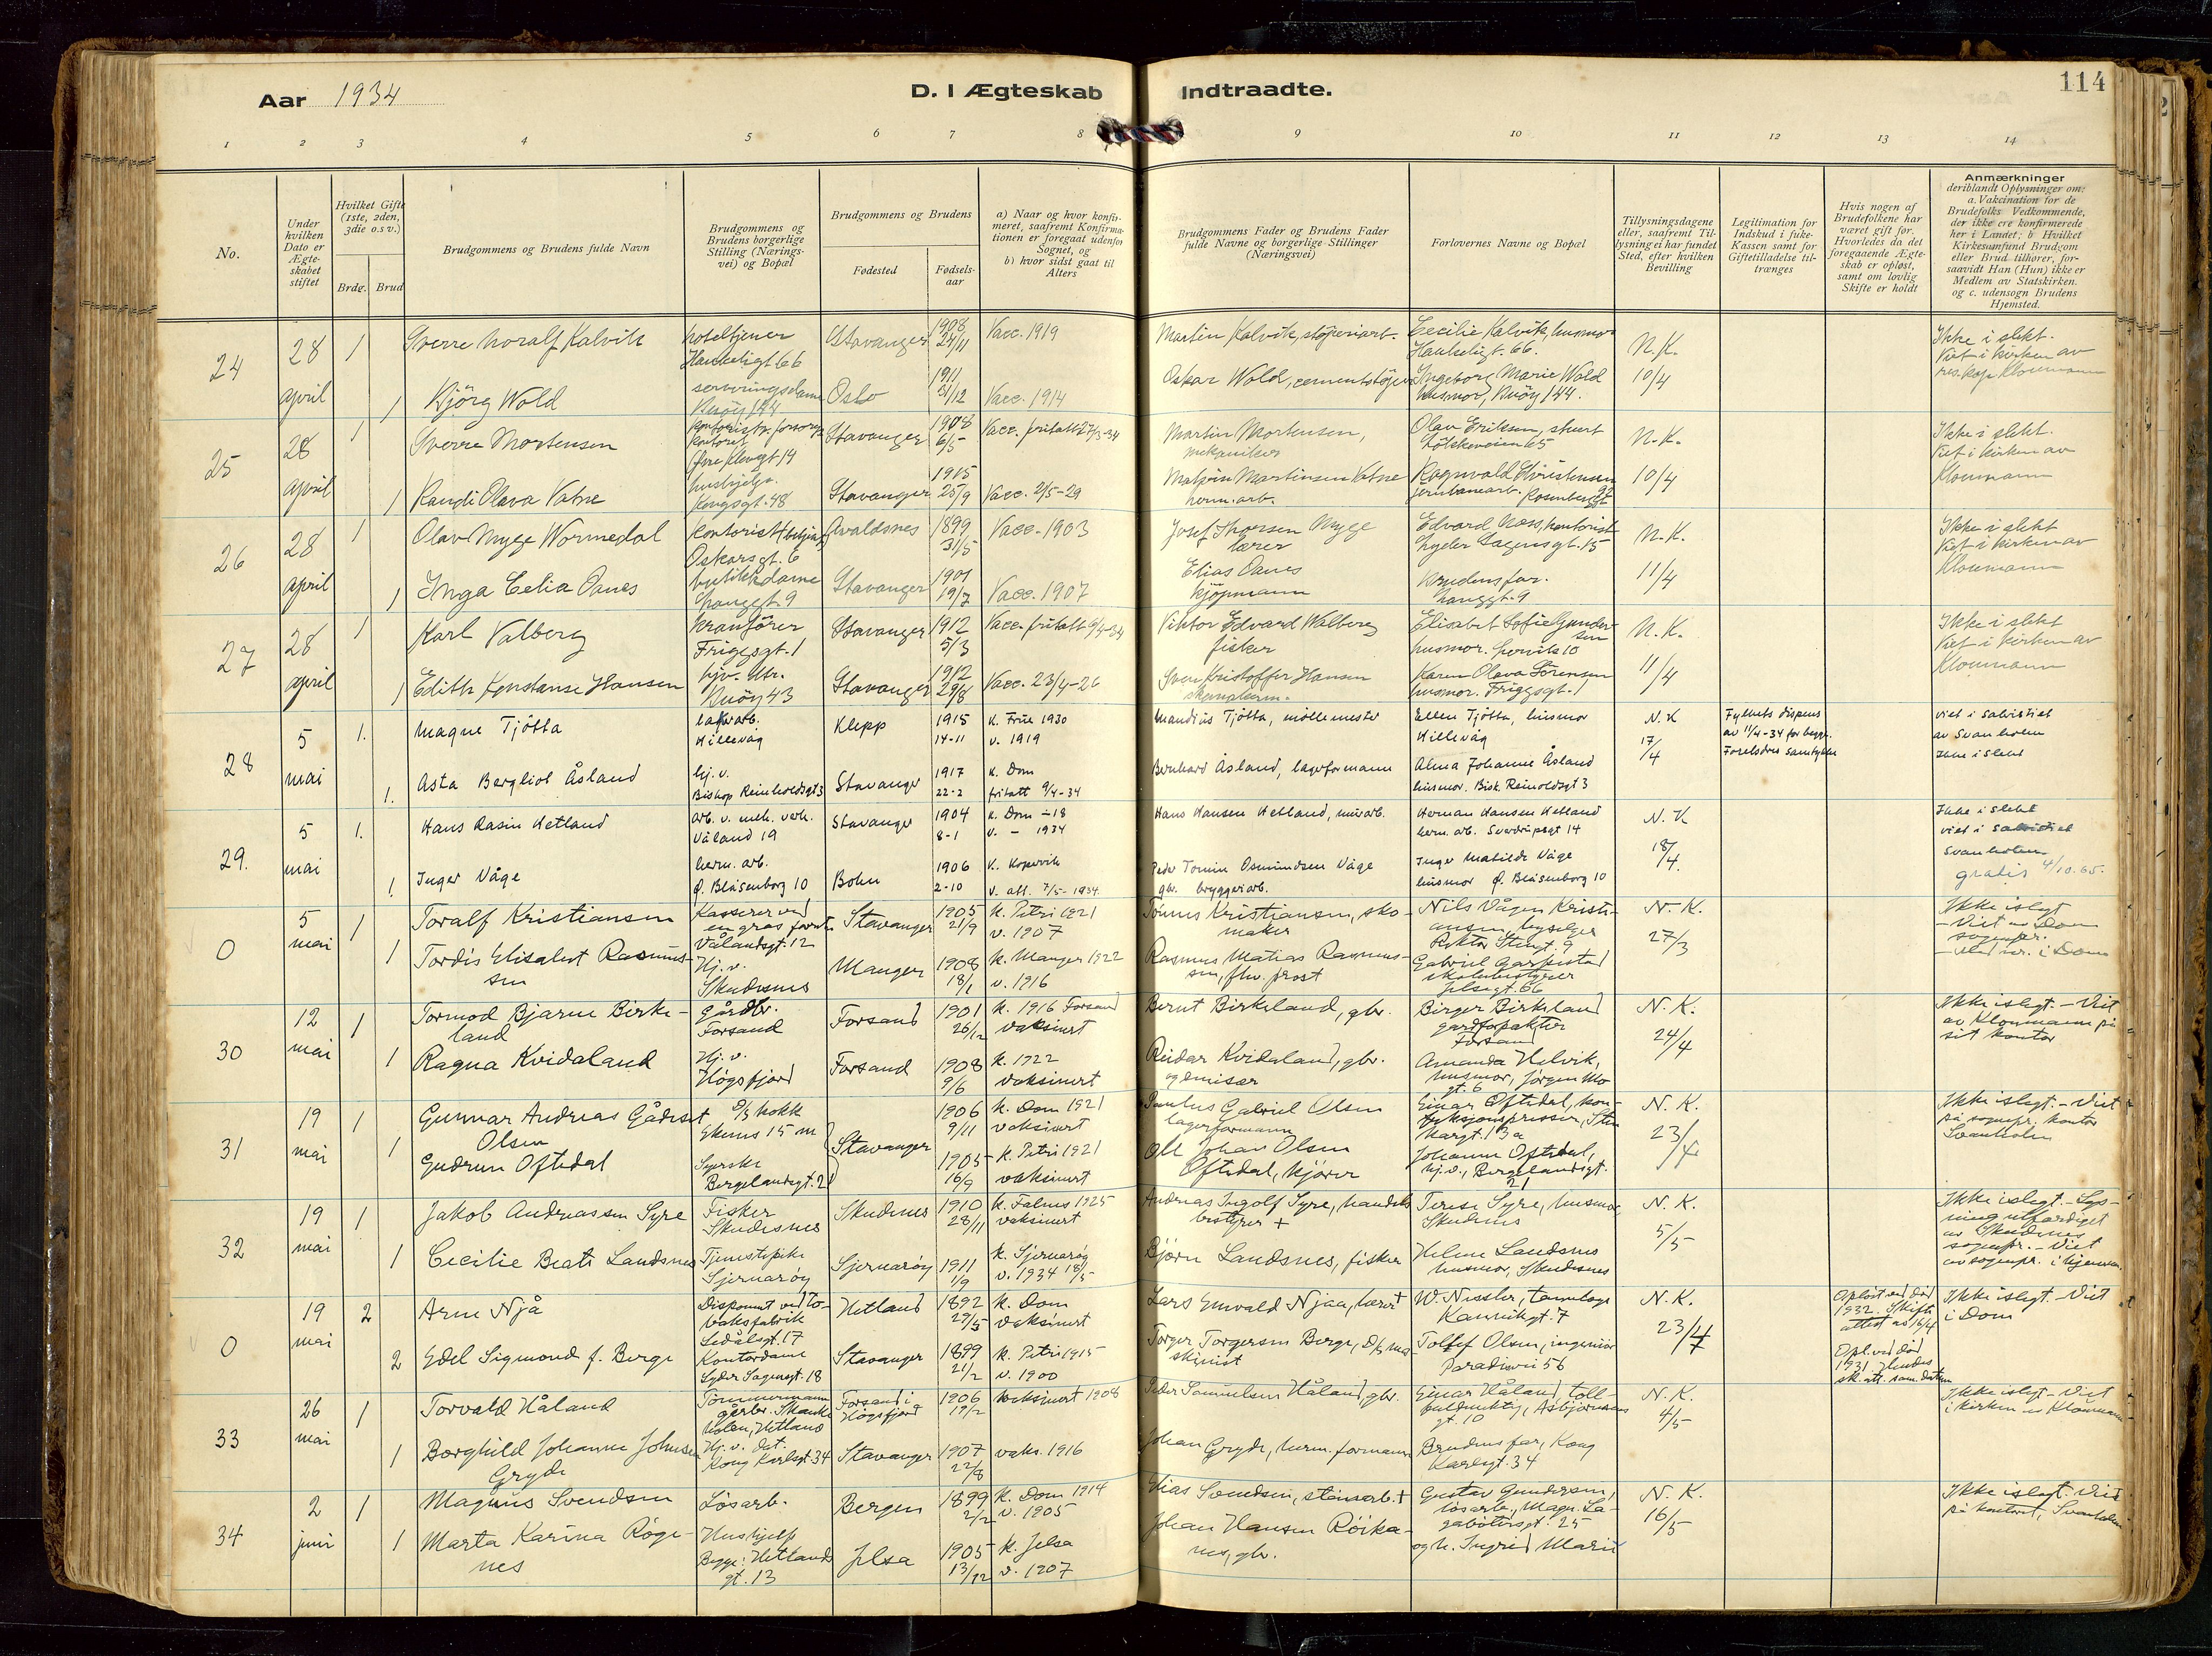 Aar 1934
D. I Ægteskab Indtraadte.
114
1 2 3 4 5 6 7 8 9 10 11 12 13 14
No.
Under hvilken Dato er Ægte-skabet stiftet
Hvilket Gifte (1ste, 2den, 3die o.s v.)
Brdg. Brud
Brudgommens og Brudens fulde Navn
Brudgommens og Brudens borgerlige Stilling (Nærings-vei) og Bopæl
Brudgommens og Brudens
Fødested
Fødsels-aar
a) Naar og hvor konfir-meret, saafremt Konfirma-tionen er foregaat udenfor Sognet, og b) hvor sidst gaat til Alters
Brudgommens Fader og Brudens Fader fulde Navne og borgerlige Stillinger (Næringsvei)
Forlovernes Navne og Bopæl
Tillysningsdagene eller, saafremt Til-lysning ei har fundet Sted, efter hvilken Bevilling
Legitimation for Indskud i Enke-Kassen samt for Giftetilladelse til-trænges
Hvis nogen af Brudefolkene har været gift før. Hvorledes da det foregaaende Ægte-skab er opløst, samt om lovlig Skifte er holdt
Anmærkninger
deriblandt Oplysninger om: a. Vakcination for de Brudefolks Vedkommende, der ikke ere konfirmerede her i Landet; b Hvilket Kirkesamfund Brudgom eller Brud tilhører, for-saavidt Han (Hun) ikke er Medlem av Statskirken. og c. udensogn Brudens Hjemsted.
24 28 april 1 Sverre Noralf Kalvik hoteltjener Haukeligt 66 Stavanger 1908 24/11 Vacc. 1919 Martin Kalvik, støperiarb. Cecilie Kalvik, husmor Haukeligt. 66. N.K. 10/4 Ikke i slekt. Viet i kirken av res.kap Kloumann
1 Kjörg Wold serveringsdame Nuöy 144 Oslo 1911 31/12 Vacc. 1914 Oskar Wold, cementstöper Ingeborg Marie Wold husmor, Nuöy 144.
25 28 april 1 Sverre Mortensen Stavanger 1908 6/5 Vacc. fritatt 27/3-34 Martin Mortensen, mekaniker Olav Eriksen, stuert N.K. 10/4 Ikke i slekt. Viet i kirken av Kloumann
1 Randi Olava Vatne hushjelp. Kongsgt. 48 Stavanger 1915 25/9 Vacc. 2/5-29 Martinsen Vatne herm. arb. Ragnvald Christensen jernbanearb. Rosenberggt
26 28 april 1 Olav Nygge Wormedal kontorist Oskarsgt. 6 Avaldsnes 1899 31/5 Vacc. 1903 Josef Thorsen Nygge lærer Edvard Næss, kontorist Lyder Sagensgt. 15 N.K. 11/4 Ikke i slekt Viet i kirken av Kloumann
1 Inga Celia Oanes butikkdame Langgt. 9 Stavanger 1901 19/7 Vacc. 1907 Elias Oanes kjöpmann Brudens far. Langgt. 9
27 28 april 1 Karl Valberg kranförer Friggsgt. 1 Stavanger 1912 5/3 Vacc. fritatt 9/4-34 Viktor Edvard Walberg fisker Elisabet Sofie Gunder-sen husmor. N.K. 11/4 Ikke i slekt Viet i kirken av Kloumann
1 Edith Konstanse Hansen hjv. dtr. Nuöy 43 Stavanger 1912 29/8 Vacc. 23/4-26 Sven Kristoffer Hansen Karen Olava Sörensen husmor. Friggsgt. 1
28 5 mai 1. Magne Tjötta lakarb. Hillevåg Klepp 1915 14-11 K. Frue 1930 v. 1919 Mandius Tjötta, möllemester Ellen Tjötta, husmor Hillevåg N.K 17/4 Fylkets dispens av 11/4-34 for begge. Foreldres samtykke viet i sakristiet av Svanholm Ikke i slekt
1. Asta Bergliot Åsland hj. v. Biskop Reinholdsgt 3 Stavanger 1917 22-2 K. Dom fritatt 9/4-34 Bernhard Åsland, lagerformann Alma Johanne Åsland husmor. Bisk. Reinoldsgt 3
29. 5 mai 1. Hans Rasin Hetland arb. v. mek. verk. Våland 19 Stavanger 1904 8-1 K. Dom -18 v. - 1934 Hans Hansen Hetland, murarb. Herman Hansen Hetland herm. arb. Sverdrupsgt 14 N.K 18/4. Ikke i slekt viet i sakristiet Svanholm gratis 4/10.65.
1. Inger Våge herm. arb. Ø. Blåsenborg 10 Bokn 1906 2-10 K. Kopervik v. att. 7/5-1934 Peder Tomin Osmundsen Våge gbr. bryggeriarb. Inger Matilde Våge husmor Ø. Blåsenborg 10
0 5 mai 1 Toralf Kristiansen Kasserer ved en gros forretn. Vålandsgt. 12 Stavanger 1905 21/9 k. Petri 1921 v. 1907 Tönnes Kristiansen, sko-maker Nils Vågen Kristi-ansen, byselger Rektor Stengt. 9 N.K. 27/3 Ikke i slegt - Viet av Dom sognepr. i Dom
1 Tordis Elisabet Rasmus-sen Hj. v. Skudesnes Manger 1908 18/1 k. Manger 1922 v. 1916 Rasmus Matias Rasmus-sen, fhv. prost Gabriel Garpestad skolebestyrer Jelsagt. 66
30 12 mai 1 Tormod Bjarne Birke-land gårdbr. Forsand Forsand 1901 26/12 k. 1916 Forsand vaksinert Bernt Birkeland, gbr. Birger Birkeland gardforpakter Forsand N.K. 24/4 Ikke i slegt. - Viet av Kloumann på sit kontor
1 Ragna Kvidaland Hj. v. Högsfjord Forsand 1908 9/6 k. 1922 vaksinert Reidar Kvidaland, gbr. Amanda Helvik, husmor, Jörgen Mo-gt. 6
31 19 mai 1 Gunnar Andreas Gådeset Olsen D/S kokk Ekenes 15 m Stavanger 1906 9/11 k. Dom 1921 vaksinert Paulus Gabriel Olsen lagerformann Einar Oftedal, kon-feksjonspresser, Sten-kargt. 13a N.K. 23/4 Ikke i slegt. - Viet på sognepr. kontor Svanholm
1 Gudrun Oftedal Syerske Bergelandsgt. 21 1905 16/9 k. Petri 1921 vaksinert Ole Johan Olsen Oftedal, kjörer Johanne Oftedal, hj.v., Bergelandsgt. 21
32 19 mai 1 Jakob Andreassen Syre Fisker Skudesnes Skudenes 1910 28/11 k. Falnes 1925 vaksinert Andreas Ingolf Syre, handels-bestyrer + Terese Syre, husmor Skudenes N.K. 5/5 Ikke i slegt. - Lys-ning utfærdiget av Skudenes sognepr. - Viet av sognepr. i hjemmet
1 Cecilie Beate Landsnes Tjenestepike Sjernarøy Sjernarøy 1911 1/9 k. Sjernarøy v. 1934 18/5 Björn Landsnes, fisker Helene Landsnes husmor, Skudesnes
0 19 mai 2 Arne Njå Disponent ved to-baksfabrik Ledålsgt. 17 Hetland 1892 27/5 k. Dom vaksinert Lars Enevald Njaa, lærer W. Nessler, tannlæge Kannikgt. 7 N.K. 23/4 Oplöst ved död 1932. Skifte attest av 16/4 Ikke i slegt. Viet i Dom
2 Edel Sigmond f. Berge Kontordame Lyder Sagensgt. 18 Stavanger 1899 21/2 k. Petri 1915 v. 1900 Torger Torgersen Berge, D/S maskinist Tollef Olsen, ingeniör Paradisvei 56 Opl. ved död 1931. sk. att. sam. datum
33 26 mai 1 Torvald Håland Tömmermann gårbr. Hetland Forsand i Högsfjord 1906 17/2 vaksinert 1908 Peder Samuelsen Håland, gbr. Einar Håland, toll-fuldmektig, Asbjörnsens gt. 10 N.K. 4/5 Ikke i slegt - Viet i kirken av Kloumann
1 Borghild Johanne Johnsen Gryde Hj. v. dat. Kong Karlsgt. 34 Stavanger 1907 22/8 vaks. 1916 Johan Gryde, herm. formann Brudens far, Kong Karlsgt. 34
34 2 juni 1 Magnus Svendsen Lösarb. Bergen 1899 2/2 k. Dom 1914 v. 1905 Elias Svendsen, stenarb. + Gustav Gundersen, lösarb., Magn. La-gaböters gt. 25 N.K. 16/5 Ikke i slegt. Viet på kontoret, Svanholm
1 Marta Karina Röge-nes Hushjelp Begge: Hetlands gt. 13 Jelsa 1905 13/12 k. Jelsa v. 1907 Johan Hansen Röika-nes, gbr. og h. Ingrid Marie